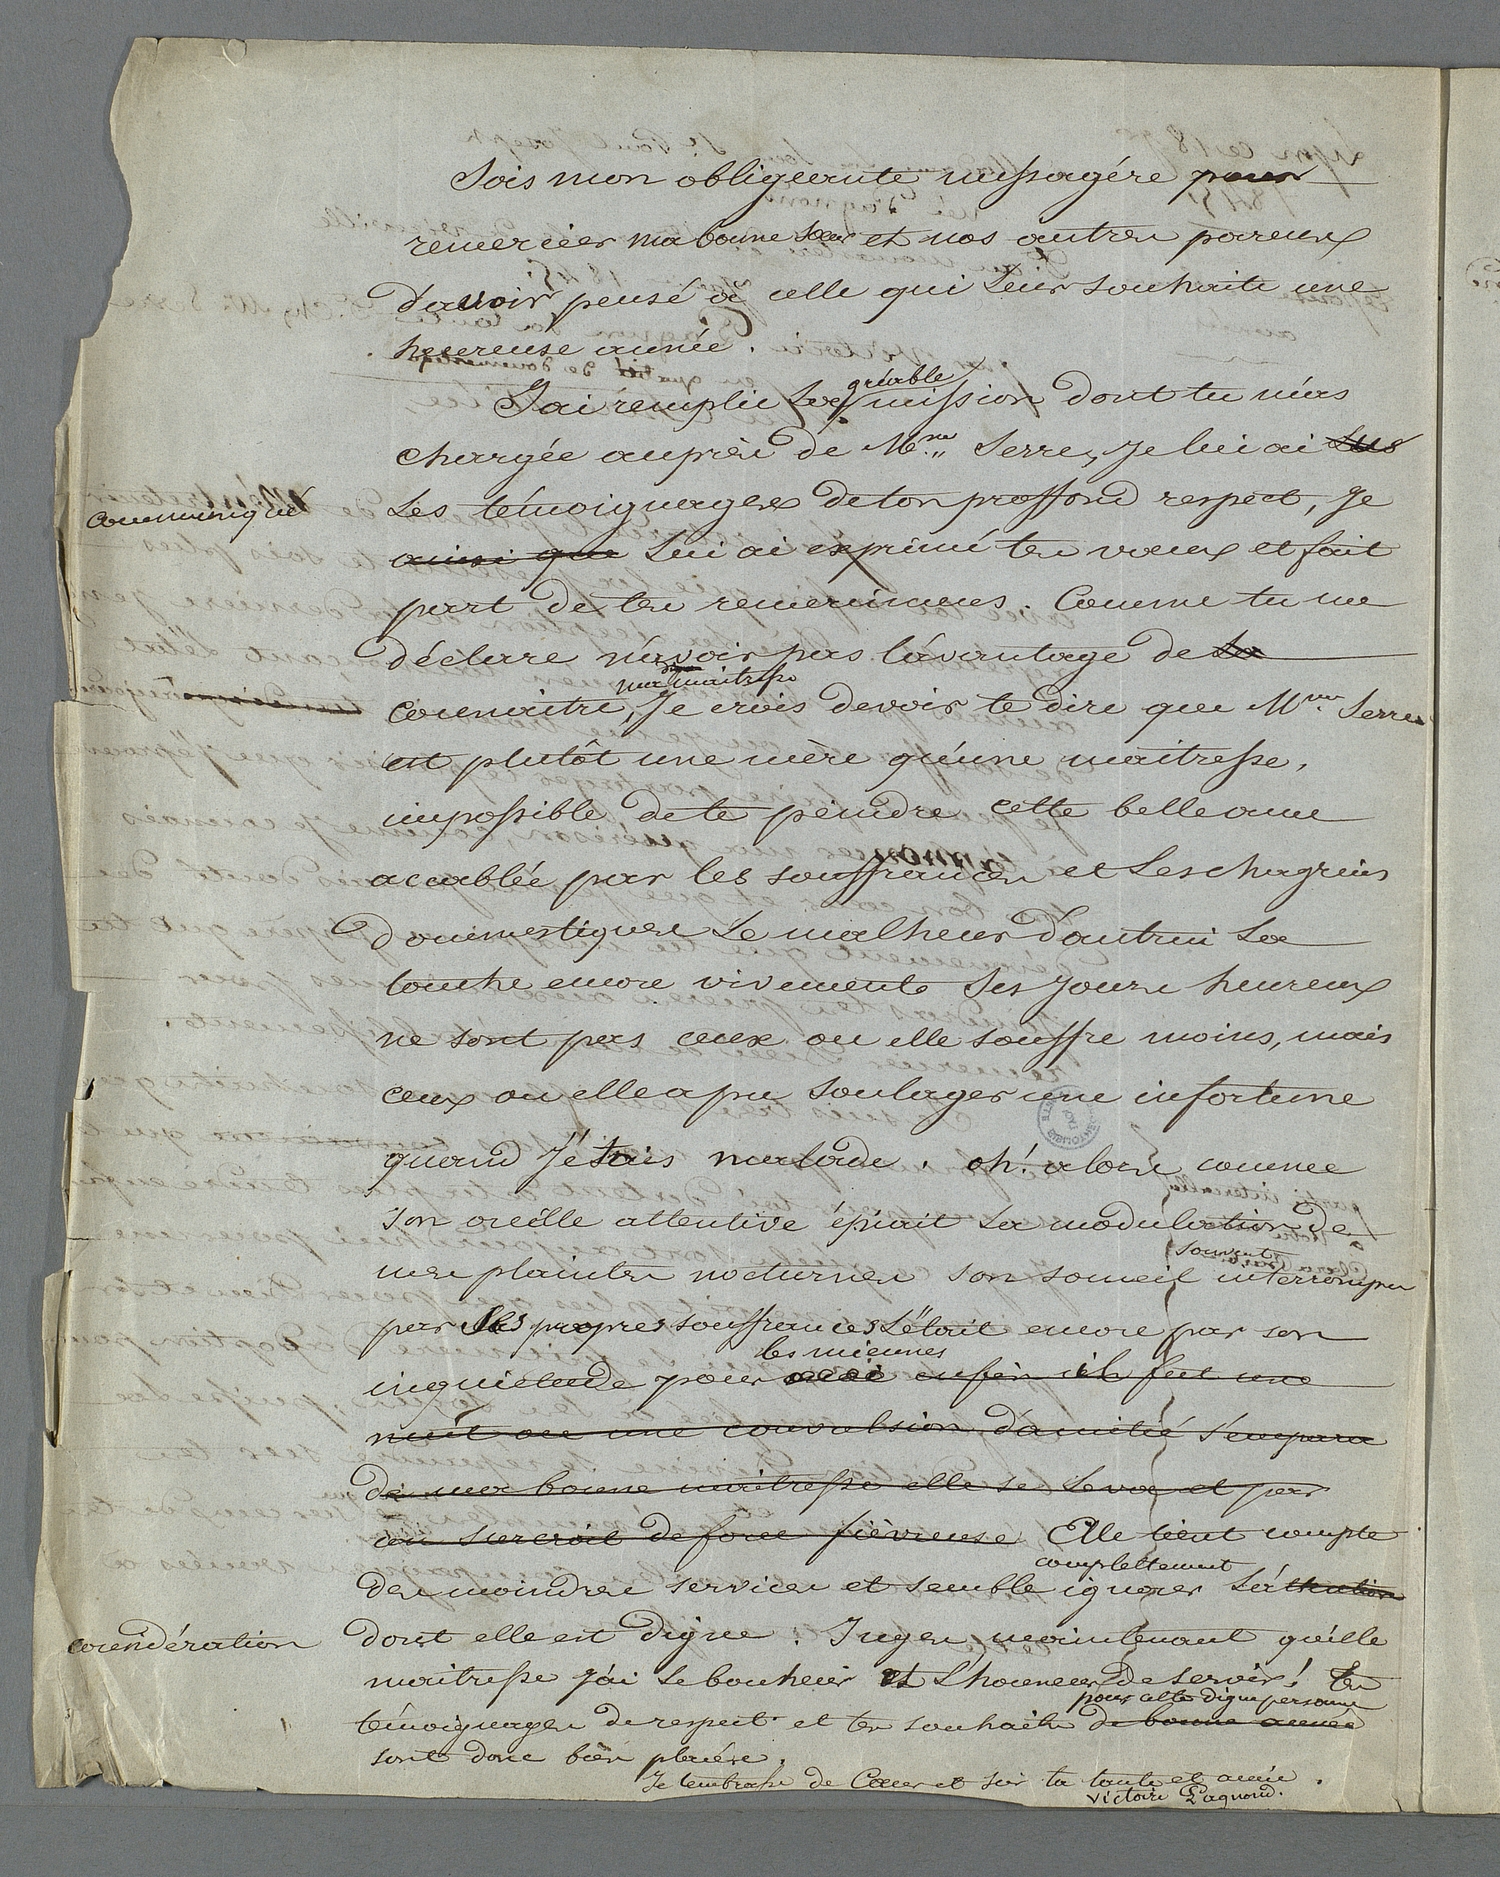 Sois mon obligeante messagére pour
remercier ma bonne sœur et nos autres parens
d'avoir pensé a celle qui leur souhaite une
heureuse année.
gréable
J'ai remplie la mission dont tu m'as
chargée auprès de Mme Serre, Je lui ai
communiqué
les témoignages de ton proffond respect, Je
ainsi que lui ai exprimé tes vœux et fait
part de tes remercimens. Comme tu me
déclare n'avoir pas l'avantage de la
ma maitresse
connaitre, Je crois devoir te dire que Mme Serre
est plutôt une mère qu'une maitresse,
impossible de te peindre cette belle ame
accablée par les souffrances et les chagrins
domestiques le malheur d'autrui la
touche encore vivement ses jours heureux
ne sont pas ceux ou elle souffre moins, mais
ceux ou elle a pu soulager une infortune
quand J'étais malade. oh! alors comme
son oreille attentive épiait la modulation de
souvent
mes plaintes nocturnes son someil interrompu
par ses propres souffrances l'était encore par son
les miennes
inquietude pour moi enfin il fut une
nuit ou une convulsion d'amitié s'empara
de ma bonne maitresse elle se leva et par
un surcroit de force fièvreuse Elle tient compte
complettement
des moindres services et semble ignorer l'attention
considération
dont elle est digne. Juges maintenant qu'elle
maitresse J'ai le bonheur et l'honneur de servir! tes
pour cette digne personne
témoignages de respect et tes souhaits de bonne année
sont donc bien placés.
Je t'embrasse de Cœur et suis ta tante et amie.
Victoire Pagnond.